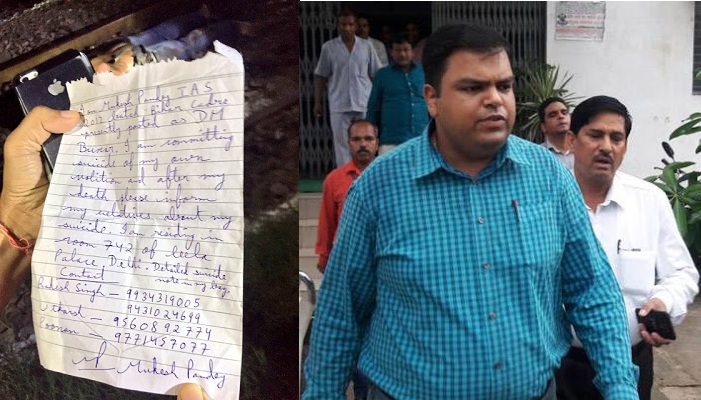 I am Mukesh Pandey IAS
2012 batch Bihar Cadre
presently posted as DM
Buxar. I am committing
suicide of my own
volition and after my
death please inform
my relatives about my
suicide. I am residing in
room 742 of leela
Palace Delhi. Detailed suicide
note in my bag.
Contact
Rakesh Singh — 9934319005
9431024699
Utkarsh — 9560892774
Poonam 9771457077
Mukesh Pandey